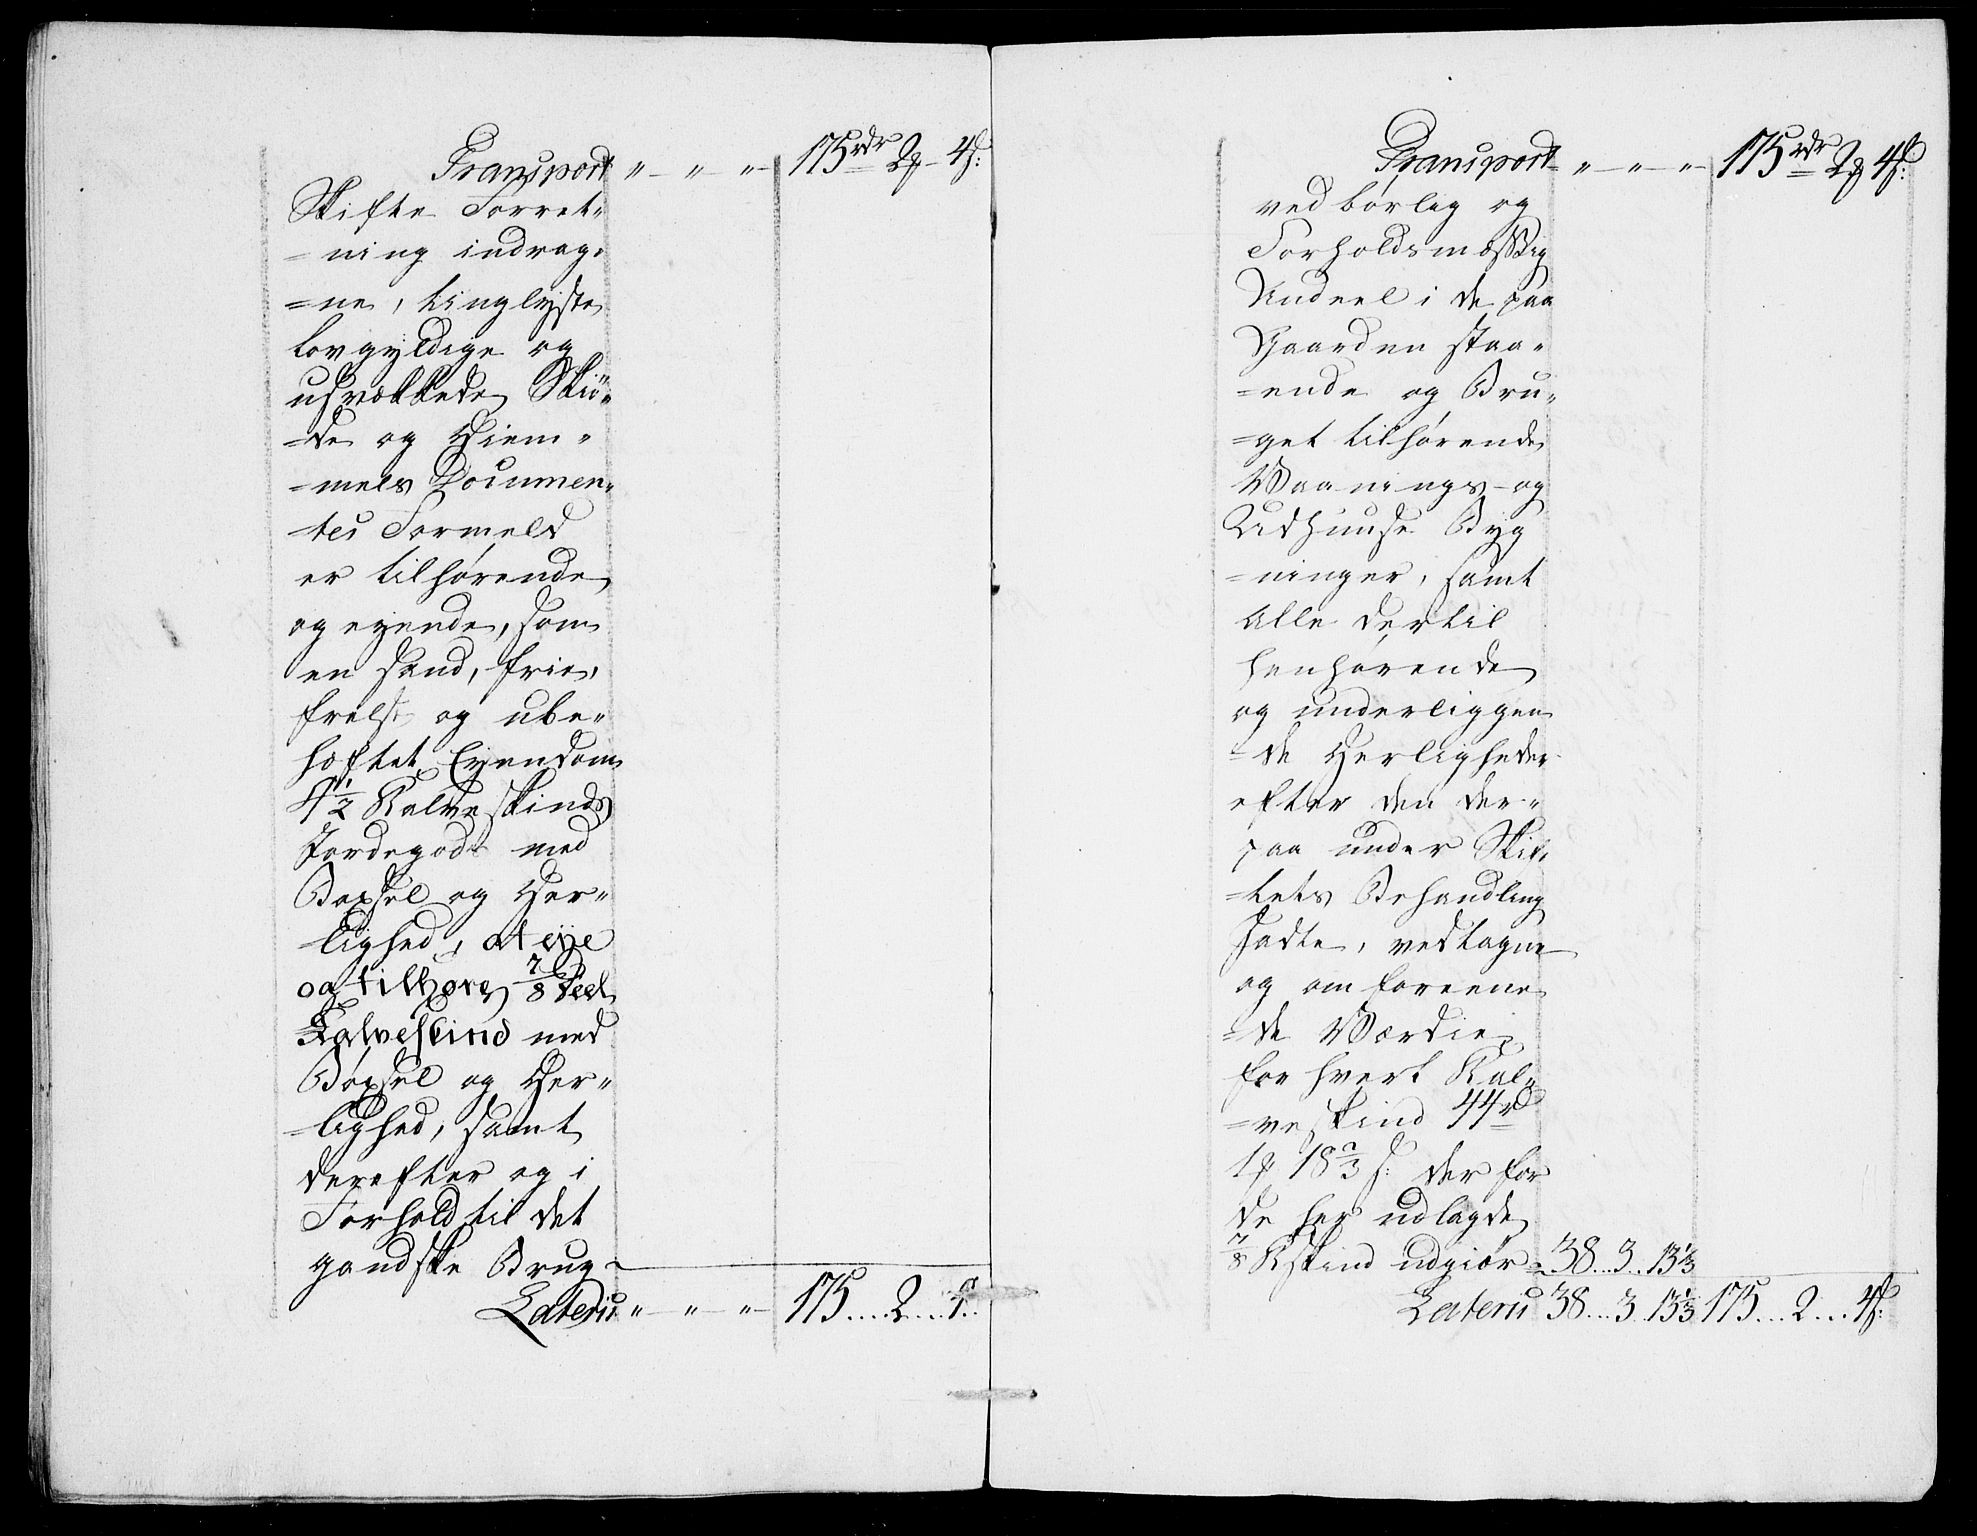 Transport " — " — " — 175rdr 2 𝓏 4 s:
Skifte Forret-
=ning indrag-
=ne, tinglyste
lovgyldige og
udvækkede Skiö-
=de og Hiem-
=mels Documen-
=ters Formeld
er tilhørende
og eyende, som
en sand, frie,
frelst og ube-
hæftet Eyendom
4 1/2 Kalveskinds
Jordegods med
Boxsel og Her-
=lighed, at eije
og tilhøre 7/8 Deel
Kalveskind med
Böxsel og Her-
=lighed, samt
derefter og i
Forhold til det
gandske Brug
Lateris " — " — " — 175....2....4 s:
Transport " — " — " — 175rdr 2 𝓏 4 s:
vedbørlig og
Forholdsmæssig
Andeel i de paa
Gaarden staa-
=ende og Bru-
=get tilhørende
Vaanings- og
Udhuuse Byg
=ninger, samt
Alle dertil
henhørende
og underliggen
=de Herligheder
efter den der-
paa under Skif-
=tets Behandling
sadte, vedtagne
og omforeene
=de Værdie
for hvert Kal-
=veskind 44rd
1 𝓏 18 2/3 s: der for
de her udlagde
7/8 Kskind udgiör 38...3...13 1/3
Lateris 38...3...13 1/3 175....2...4 s: